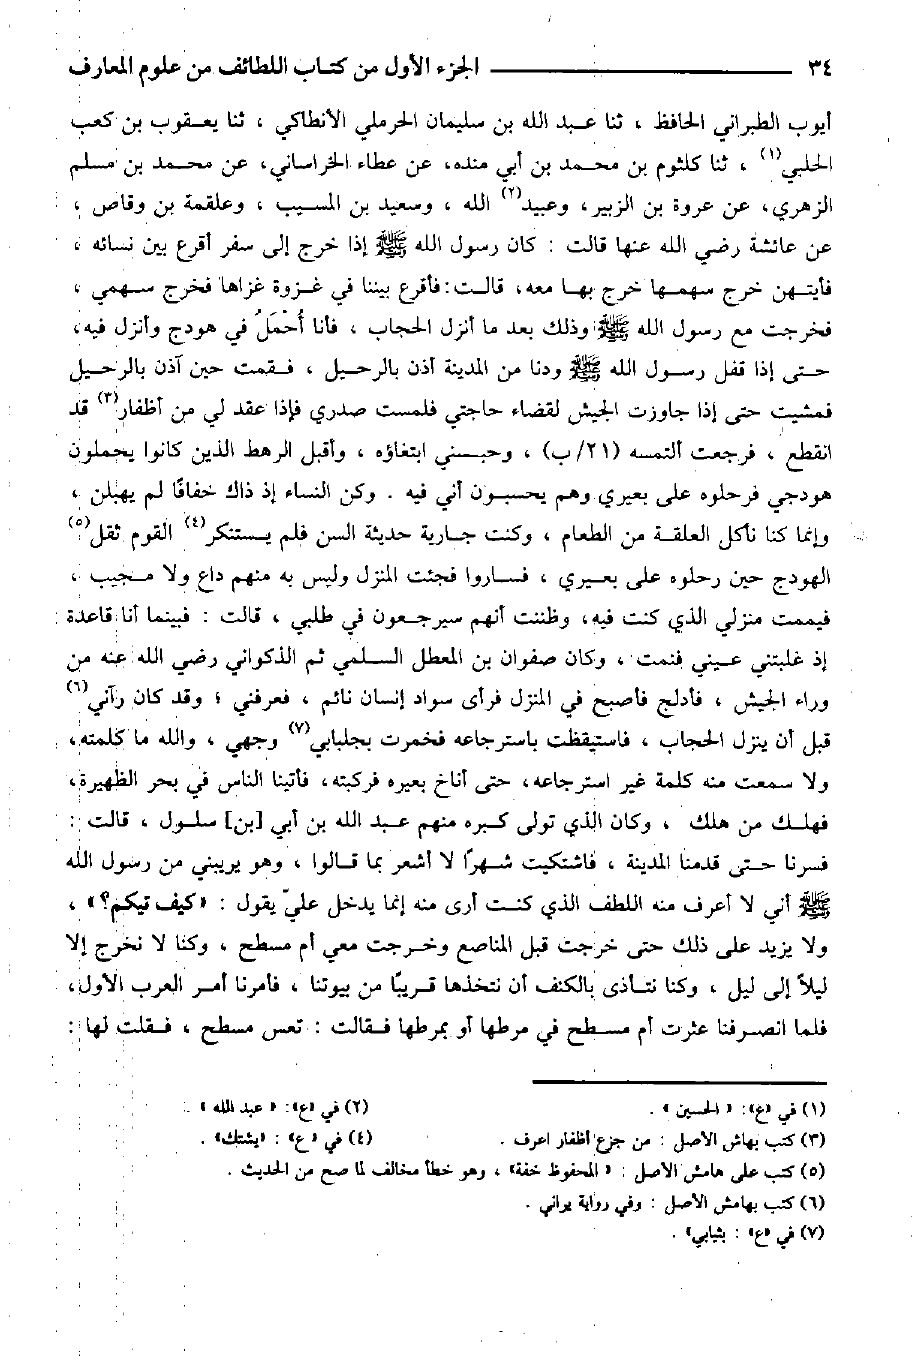 ٣٤ الجزء الأول من كتاب اللطائف من علوم المعارف
أيوب الطبراني الحافظ ، ثنا عبد الله بن سليمان الحرملي الأنطاكي ، ثنا يعقوب بن كعب
الحلبي(١) ، ثنا كلثوم بن محمد بن أبي منده، عن عطاء الخراساني، عن محمد بن مسلم
الزهري، عن عروة بن الزبير، وعبيد(٢) الله ، وسعيد بن المسيب ، وعلقمة بن وقاص ،
عن عائشة رضي الله عنها قالت : كان رسول الله ﷺ إذا خرج إلى سفر أقرع بين نسائه ،
فأيتهن خرج سهمها خرج بها معه، قالت: فأقرع بيننا في غزوة غزاها فخرج سهمي ،
فخرجت مع رسول الله ﷺ وذلك بعد ما أنزل الحجاب ، فأنا أُحْمَلُ في هودج وأنزل فيه،
حتى إذا قفل رسول الله ﷺ ودنا من المدينة أذن بالرحيل ، فقمت حين آذن بالرحيل
فمشيت حتى إذا جاوزت الجيش لقضاء حاجتي فلمست صدري فإذا عقد لي من أظفار(٣) قد
انقطع ، فرجعت ألتمسه (٢١/ب) ، وحبسني ابتغاؤه ، وأقبل الرهط الذين كانوا يحملون
هودجي فرحلوه على بعيري وهم يحسبون أني فيه . وكن النساء إذ ذاك خفافًا لم يهبلن ،
وإنما كنا نأكل العلقة من الطعام ، وكنت جارية حديثة السن فلم يستنكر(٤) القوم ثقل(٥)
الهودج حين رحلوه على بعيري ، فساروا فجئت المنزل وليس به منهم داع ولا مجيب ،
فيممت منزلي الذي كنت فيه، وظننت أنهم سيرجعون في طلبي ، قالت : فبينما أنا قاعدة
إذ غلبتني عيني فنمت ، وكان صفوان بن المعطل السلمي ثم الذكواني رضي الله عنه من
وراء الجيش ، فأدلج فأصبح في المنزل فرأى سواد إنسان نائم ، فعرفني ؛ وقد كان رآني(٦)
قبل أن ينزل الحجاب ، فاستيقظت باسترجاعه فخمرت بجلبابي(٧) وجهي ، والله ما كلمته،
ولا سمعت منه كلمة غير استرجاعه، حتى أناخ بعيره فركبته، فأتينا الناس في بحر الظهيرة،
فهلك من هلك ، وكان الذي تولى كبره منهم عبد الله بن أبي [بن] سلول ، قالت :
فسرنا حتى قدمنا المدينة ، فاشتكيت شهرًا لا أشعر بما قالوا ، وهو يريبني من رسول الله
ﷺ أني لا أعرف منه اللطف الذي كنت أرى منه إنما يدخل عليّ يقول : «كيف تيكم؟» ،
ولا يزيد على ذلك حتى خرجت قبل المناصع وخرجت معي أم مسطح ، وكنا لا نخرج إلا
ليلاً إلى ليل ، وكنا نتأذى بالكنف أن نتخذها قريبًا من بيوتنا ، فأمرنا أمر العرب الأول،
فلما انصرفنا عثرت أم مسطح في مرطها أو بمرطها فقالت : تعس مسطح ، فقلت لها :
(١) في «ع»: «الحسين» . (٢) في «ع»: «عبد الله» .
(٣) كتب بهاش الأصل : من جزع أظفار اعرف . (٤) في «ع» : «يشتك» .
(٥) كتب على هامش الأصل : «المحفوظ خفة» ، وهو خطأ مخالف لما صح من الحديث .
(٦) كتب بهامش الأصل : وفي رواية يراني .
(٧) في «ع» : بثيابي» .